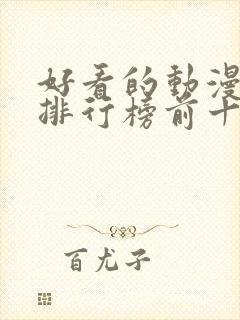 好看的動漫
排行榜前十
百尤子